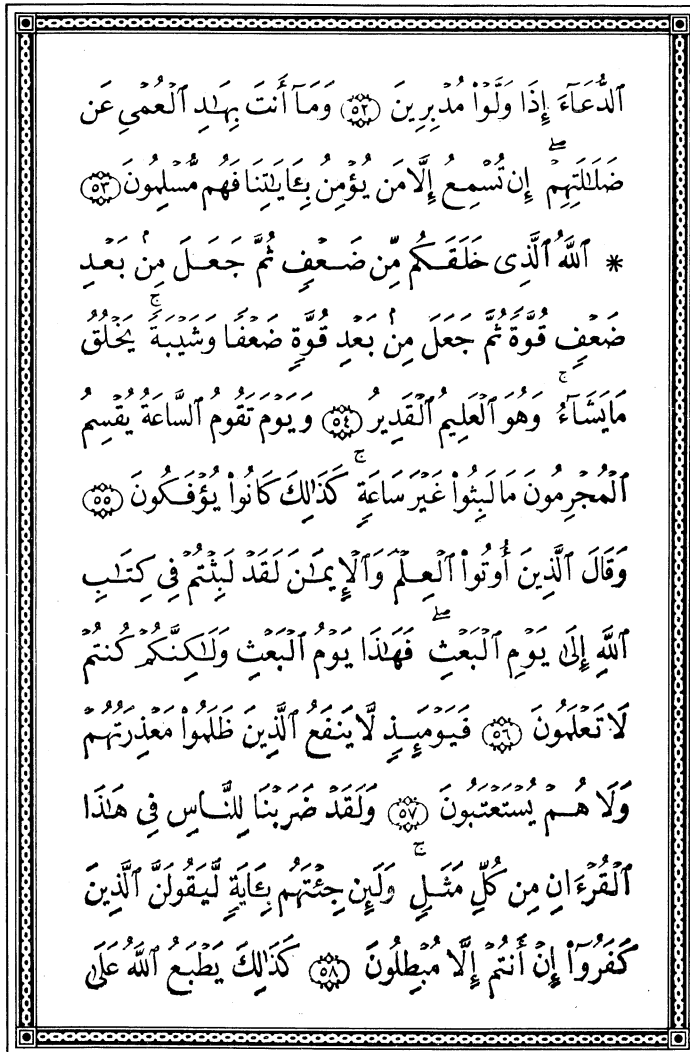 ٱلدُّعَآءَ إِذَا وَلَّوْا۟ مُدْبِرِينَ ٥٢ وَمَآ أَنتَ بِهَٰدِ ٱلْعُمْىِ عَن
ضَلَٰلَتِهِمْ ۖ إِن تُسْمِعُ إِلَّا مَن يُؤْمِنُ بِـَٔايَٰتِنَا فَهُم مُّسْلِمُونَ ٥٣
* ٱللَّهُ ٱلَّذِى خَلَقَكُم مِّن ضَعْفٍ ثُمَّ جَعَلَ مِنۢ بَعْدِ
ضَعْفٍ قُوَّةً ثُمَّ جَعَلَ مِنۢ بَعْدِ قُوَّةٍ ضَعْفًا وَشَيْبَةً ۚ يَخْلُقُ
مَا يَشَآءُ ۚ وَهُوَ ٱلْعَلِيمُ ٱلْقَدِيرُ ٥٤ وَيَوْمَ تَقُومُ ٱلسَّاعَةُ يُقْسِمُ
ٱلْمُجْرِمُونَ مَا لَبِثُوا۟ غَيْرَ سَاعَةٍ ۚ كَذَٰلِكَ كَانُوا۟ يُؤْفَكُونَ ٥٥
وَقَالَ ٱلَّذِينَ أُوتُوا۟ ٱلْعِلْمَ وَٱلْإِيمَٰنَ لَقَدْ لَبِثْتُمْ فِى كِتَٰبِ
ٱللَّهِ إِلَىٰ يَوْمِ ٱلْبَعْثِ ۖ فَهَٰذَا يَوْمُ ٱلْبَعْثِ وَلَٰكِنَّكُمْ كُنتُمْ
لَا تَعْلَمُونَ ٥٦ فَيَوْمَئِذٍ لَّا يَنفَعُ ٱلَّذِينَ ظَلَمُوا۟ مَعْذِرَتُهُمْ
وَلَا هُمْ يُسْتَعْتَبُونَ ٥٧ وَلَقَدْ ضَرَبْنَا لِلنَّاسِ فِى هَٰذَا
ٱلْقُرْءَانِ مِن كُلِّ مَثَلٍ ۚ وَلَئِن جِئْتَهُم بِـَٔايَةٍ لَّيَقُولَنَّ ٱلَّذِينَ
كَفَرُوٓا۟ إِنْ أَنتُمْ إِلَّا مُبْطِلُونَ ٥٨ كَذَٰلِكَ يَطْبَعُ ٱللَّهُ عَلَىٰ